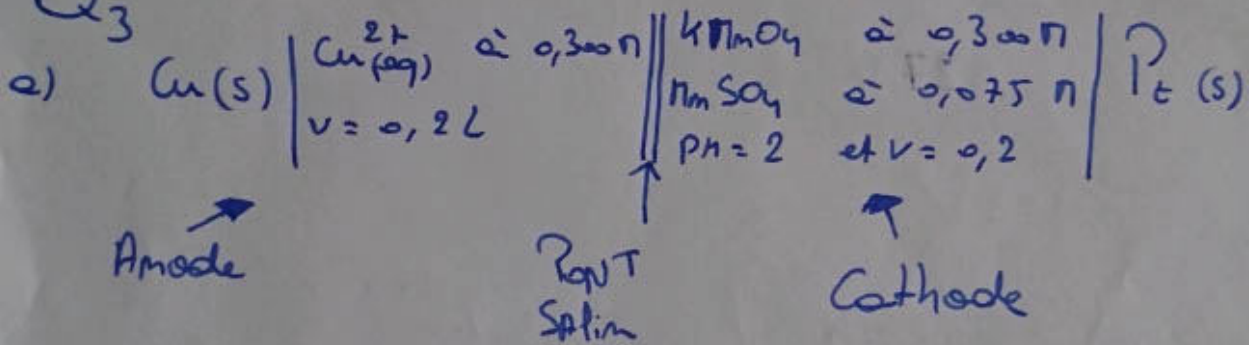 Q3
a) Cu(s) | Cu²⁺(aq) à 0,300 M || KMnO4 à 0,300 M | Pt (s)
V = 0,2 L MnSO4 à 0,075 M
pH = 2 et V = 0,2
Anode
PONT
Salin
Cathode